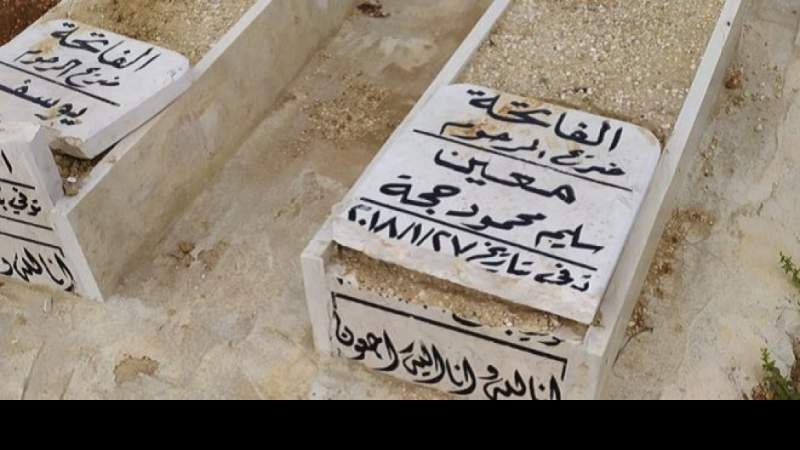 الفاتحة
ضريح المرحوم
يوسف
توفي
انا لله و
الفاتحة
ضريح المرحوم
معين
سليم محمود حجة
دفن تاريخ ٢٠١٨/١/٢٧
انا لله و انا اليه راجعون